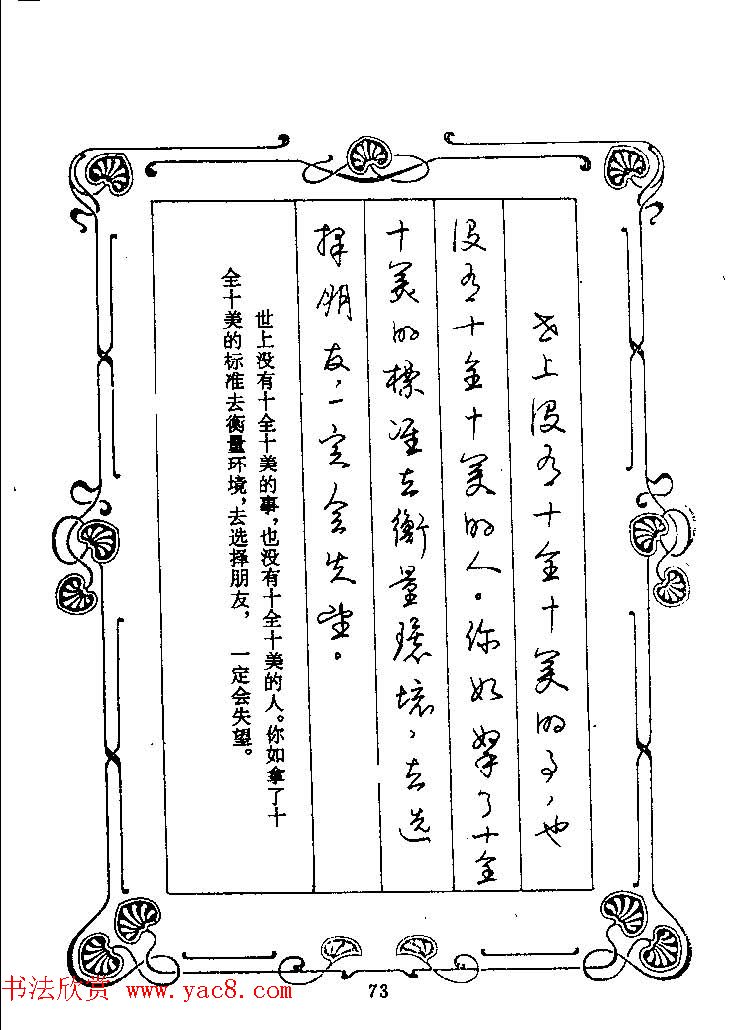 世上没有十全十美的事，也
没有十全十美的人。你如拏了十全
十美的標准去衡量環境，去选
择朋友，一定会失望。
世上没有十全十美的事，也没有十全十美的人。你如拿了十
全十美的标准去衡量环境，去选择朋友，一定会失望。
73
书法欣赏 www.yac8.com